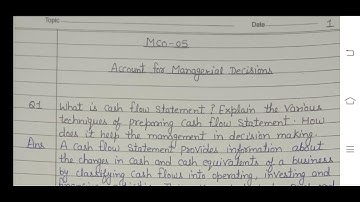 Topic
Date
1
MCO-05
Account for Managerial Decisions
Q1 What is cash flow statement? Explain the various
techniques of preparing cash flow statement. How
does it help the management in decision making.
Ans A cash flow statement provides information about
the changes in cash and cash equivalents of a business
by classifying cash flows into operating, investing and